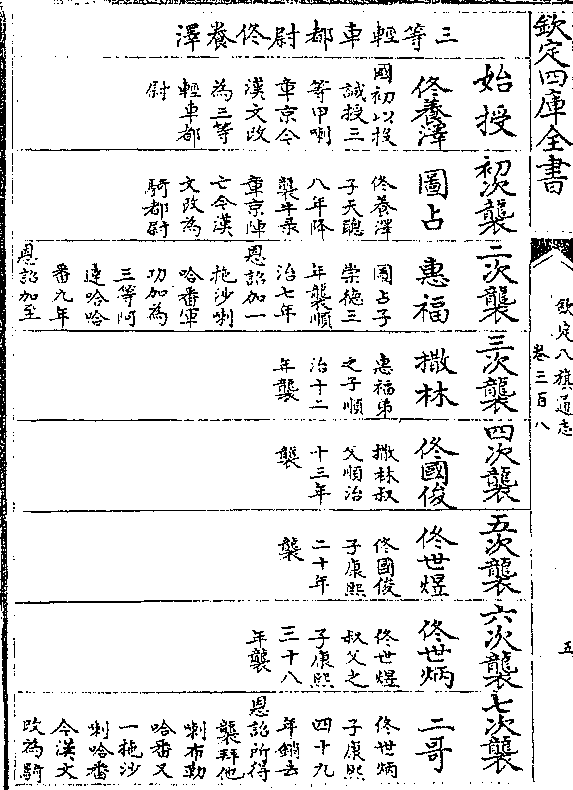 欽定四庫全書
欽定八旗通志
卷三百八
五
三等輕車都尉佟養澤
始授
佟養澤
國初以投
誠授三
等甲喇
章京今
漢文改
為三等
輕車都
尉
初次襲
圖占
佟養澤
子天聰
八年降
襲牛录
章京陣
亡今漢
文改為
騎都尉
二次襲
惠福
圖占子
崇德三
年襲順
治七年
恩詔加一
拖沙喇
哈番軍
功加為
三等阿
達哈哈
番九年
恩詔加至
三次襲
撒林
惠福弟
之子順
治十二
年襲
四次襲
佟國俊
撒林叔
父順治
十三年
襲
五次襲
佟世煜
佟國俊
子康熙
二十年
襲
六次襲
佟世炳
佟世煜
叔父之
子康熙
三十八
年襲
七次襲
二哥
佟世炳
子康熙
四十九
年銷去
恩詔所得
襲拜他
喇布勒
哈番又
一拖沙
喇哈番
今漢文
改為騎